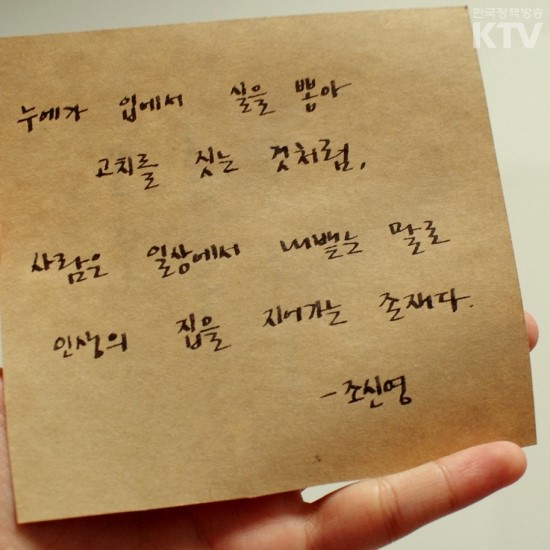 한국정책방송
KTV
누에가 입에서 실을 뽑아
고치를 짓는 것처럼,
사람은 일상에서 내뱉는 말로
인생의 집을 지어가는 존재다.
- 조신영